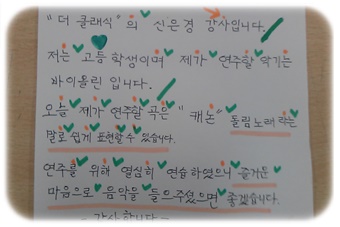 "더 클래식"의 신은경 강사입니다.
저는 고등학생이며 제가 연주할 악기는
바이올린 입니다.
오늘 제가 연주할 곡은 "캐논" 돌림노래라는
말로 쉽게 표현할 수 있습니다.
연주를 위해 열심히 연습하였으니 즐거운
마음으로 음악을 들으주셨으면 좋겠습니다.
- 감사합니다 -